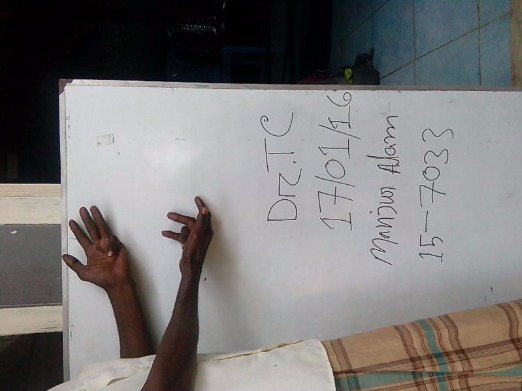 Dr.TC
17/01/16
Manjur Alam
15-7033